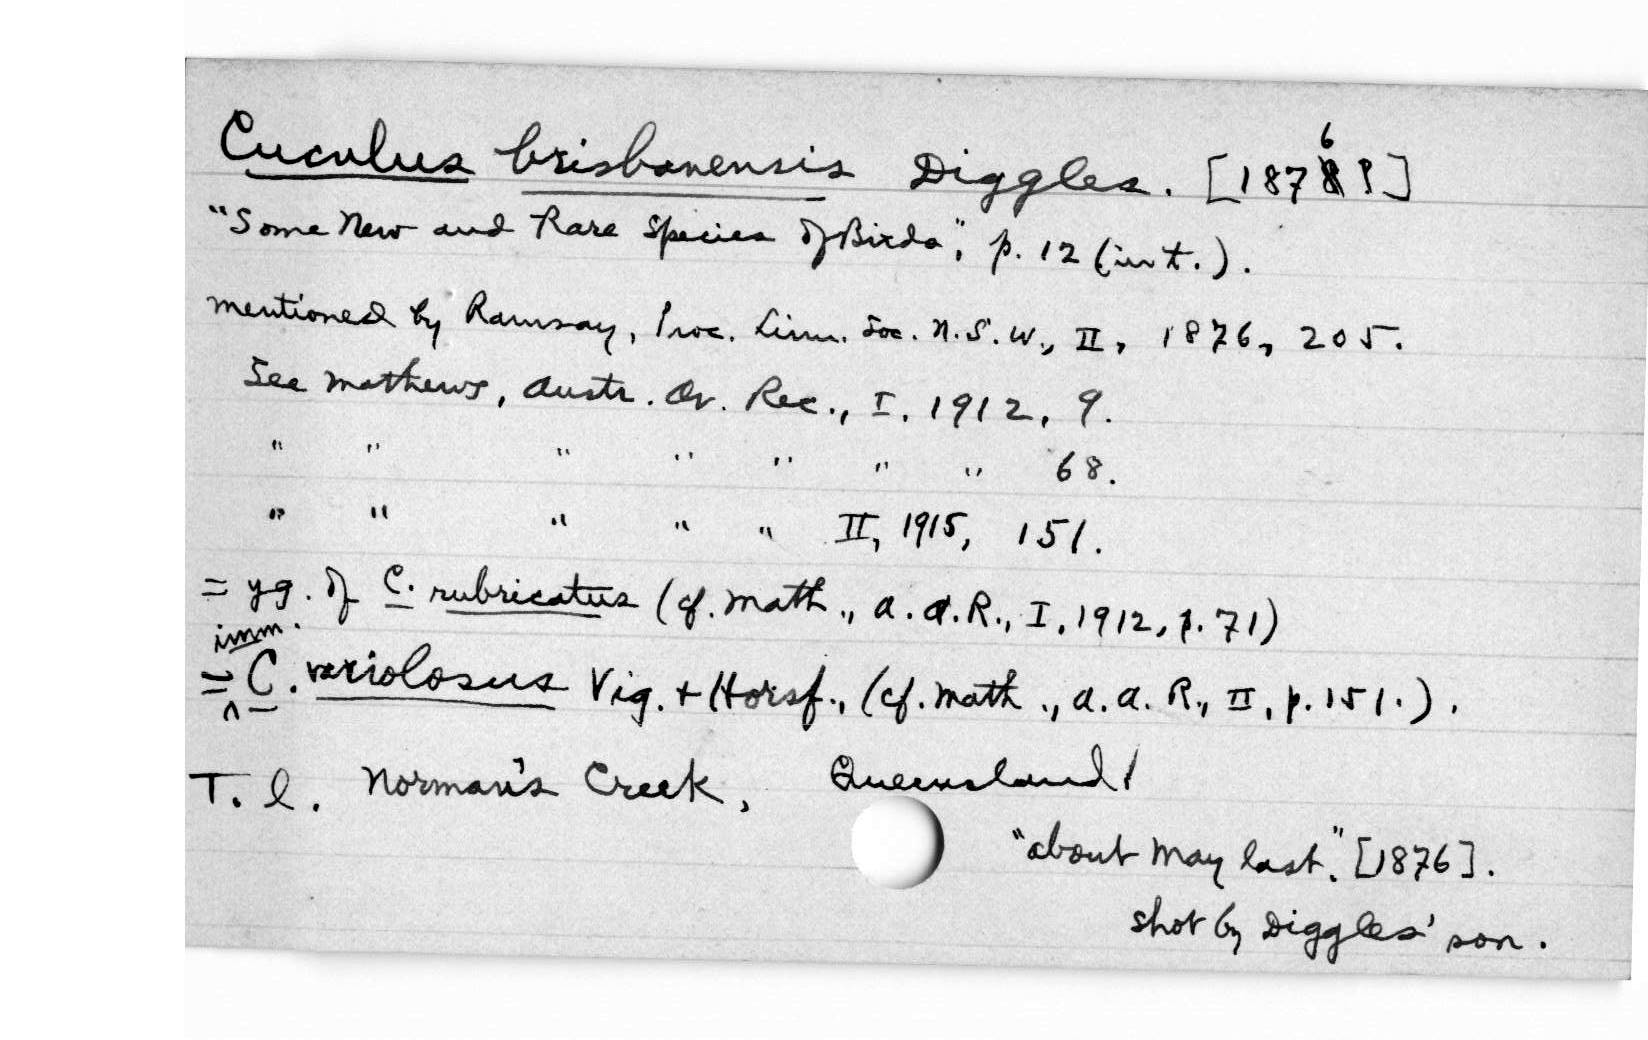 Cuculus brisbanensis Diggles. [1876 ?]
"Some New and Rare Species of Birds", p. 12 (int.).
mentioned by Ramsay, Proc. Linn. Soc. N.S.W., II, 1876, 205.
See Mathews, Austr. Av. Rec., I, 1912, 9.
" " " " " " " 68.
" " " " " II, 1915, 151.
= yg. of C. rubricatus (cf. Math., A.A.R., I, 1912, p. 71)
= imm. C. variolosus Vig. + Horsf., (cf. Math., A.A.R., II, p. 151.).
T. l. Norman's Creek, Queensland!
"about May last." [1876].
shot by Diggles' son.